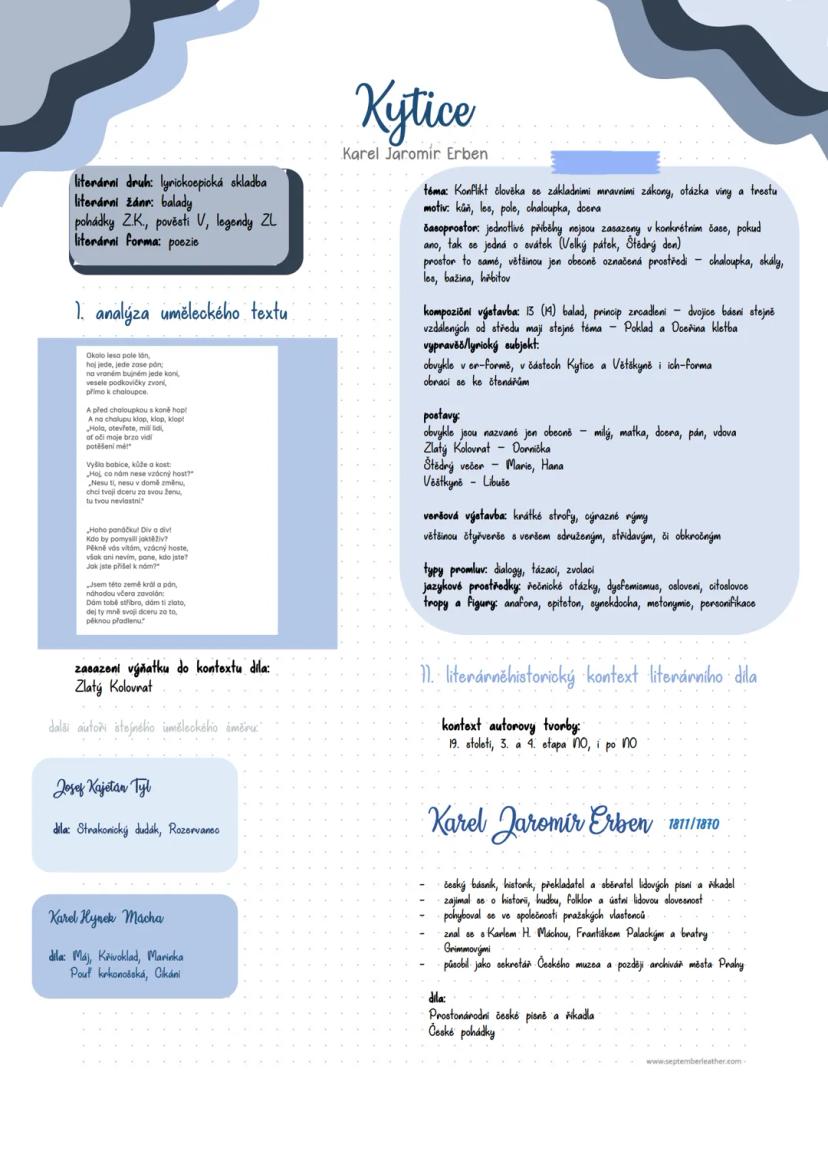 Kytice
Karel Jaromír Erben
literární druh: lyrickoepická skladba
literární žánr: balady
pohádky Z.K., pověsti V, legendy ZL
literární forma: poezie
I. analýza uměleckého textu
Okolo lesa pole lán,
hoj jede, jede zase pán;
na vraném bujném jede koni,
vesele podkovičky zvoní,
přímo k chaloupce.
A před chaloupkou s koně hop!
A na chalupu klop, klop, klop!
„Hola, otevřete, milí lidi,
ať oči moje brzo vidí
potěšení mé!“
Vyšla babice, kůže a kost:
„Hoj, co nám nese vzácný host?“
„Nesu ti, nesu v domě změnu,
chci tvoji dceru za svou ženu,
tu tvou nevlastní.“
„Hoho panáčku! Div a div!
Kdo by pomyslil jaktěživ?
Pěkně vás vítám, vzácný hoste,
však ani nevím, pane, kdo jste?
Jak jste přišel k nám?“
„Jsem této země král a pán,
náhodou včera zavolán:
Dám tobě stříbro, dám ti zlato,
dej ty mně svoji dceru za to,
pěknou přadlenu.“
zasazení výňatku do kontextu díla:
Zlatý Kolovrat
další autoři stejného uměleckého směru:
Josef Kajetán Tyl
díla: Strakonický dudák, Rozervanec
Karel Hynek Mácha
díla: Máj, Křivoklad, Marinka
Pouť krkonošská, Cikáni
téma: Konflikt člověka se základními mravními zákony, otázka viny a trestu
motiv: kůň, les, pole, chaloupka, dcera
časoprostor: jednotlivé příběhy nejsou zasazeny v konkrétním čase, pokud
ano, tak se jedná o svátek (Velký pátek, Štědrý den)
prostor to samé, většinou jen obecně označená prostředí – chaloupka, skály,
les, bažina, hřbitov
kompoziční výstavba: 13 (14) balad, princip zrcadlení – dvojice básní stejně
vzdálených od středu mají stejné téma – Poklad a Dceřina kletba
vypravěč/lyrický subjekt:
obvykle v er-formě, v částech Kytice a Větškyně i ich-forma
obrací se ke čtenářům
postavy:
obvykle jsou nazvané jen obecně – milý, matka, dcera, pán, vdova
Zlatý Kolovrat – Dornička
Štědrý večer – Marie, Hana
Věštkyně – Libuše
veršová výstavba: krátké strofy, cýrazné rýmy
většinou čtyřverše s veršem sdruženým, střídavým, či obkročným
typy promluv: dialogy, tázací, zvolací
jazykové prostředky: řečnické otázky, dysfemismus, oslovení, citoslovce
tropy a figury: anafora, epiteton, synekdocha, metonymie, personifikace
II. literárněhistorický kontext literárního díla
kontext autorovy tvorby:
19. století, 3. a 4. etapa NO, i po NO
Karel Jaromír Erben 1811/1870
- český básník, historik, překladatel a sběratel lidových písní a říkadel
- zajímal se o historii, hudbu, folklor a ústní lidovou slovesnost
- pohyboval se ve společnosti pražských vlastenců
- znal se s Karlem H. Máchou, Františkem Palackým a bratry
Grimmovými
- působil jako sekretář Českého muzea a později archivář města Prahy
díla:
Prostonárodní české písně a říkadla
České pohádky
www.septemberleather.com